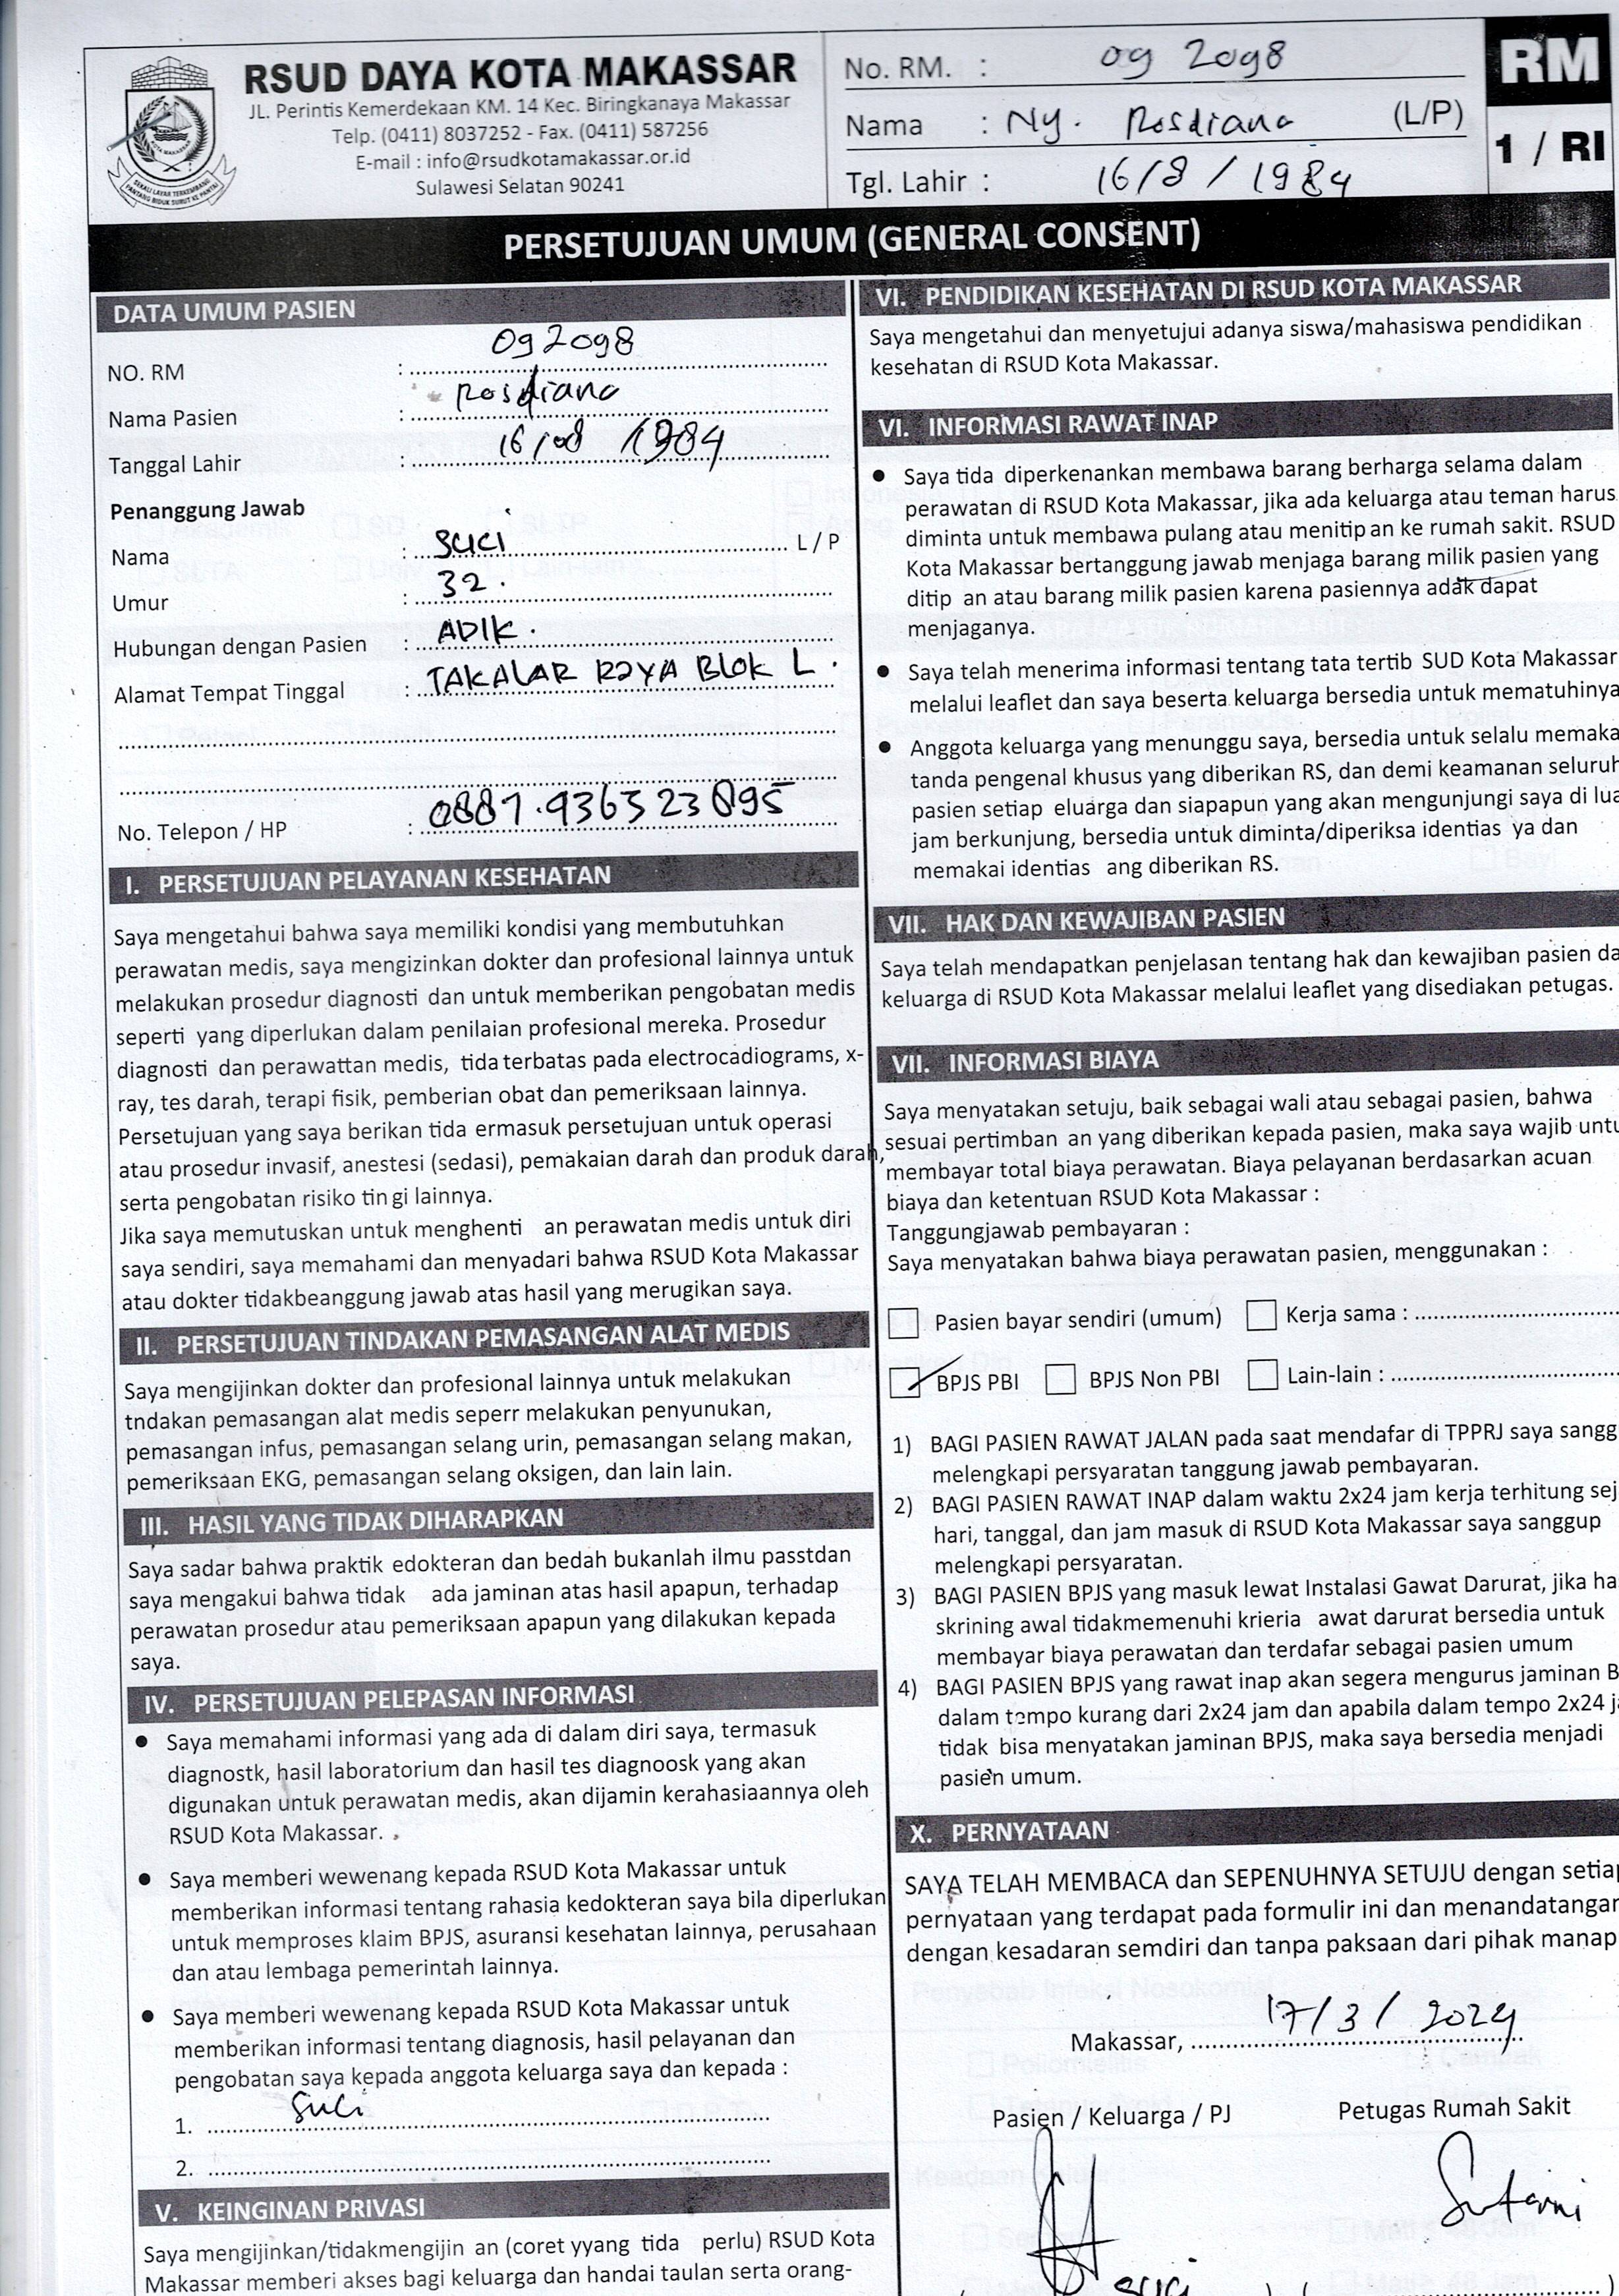 RSUD DAYA KOTA MAKASSAR
JL. Perintis Kemerdekaan KM. 14 Kec. Biringkanaya Makassar
Telp. (0411) 8037252 - Fax. (0411) 587256
E-mail : info@rsudkotamakassar.or.id
Sulawesi Selatan 90241
No. RM. : 092098
Nama : Ny. Rosdiana (L/P)
Tgl. Lahir : 16/8/1984
RM
1 / RI
PERSETUJUAN UMUM (GENERAL CONSENT)
DATA UMUM PASIEN
NO. RM : 092098
Nama Pasien : Rosdiana
Tanggal Lahir : 16/08/1984
Penanggung Jawab
Nama : SUCI L / P
Umur : 32.
Hubungan dengan Pasien : ADIK.
Alamat Tempat Tinggal : TAKALAR RAYA BLOK L.
No. Telepon / HP : 0881.936323895
I. PERSETUJUAN PELAYANAN KESEHATAN
Saya mengetahui bahwa saya memiliki kondisi yang membutuhkan
perawatan medis, saya mengizinkan dokter dan profesional lainnya untuk
melakukan prosedur diagnosti dan untuk memberikan pengobatan medis
seperti yang diperlukan dalam penilaian profesional mereka. Prosedur
diagnosti dan perawattan medis, tida terbatas pada electrocadiograms, x-
ray, tes darah, terapi fisik, pemberian obat dan pemeriksaan lainnya.
Persetujuan yang saya berikan tida ermasuk persetujuan untuk operasi
atau prosedur invasif, anestesi (sedasi), pemakaian darah dan produk darah,
serta pengobatan risiko tin gi lainnya.
Jika saya memutuskan untuk menghenti an perawatan medis untuk diri
saya sendiri, saya memahami dan menyadari bahwa RSUD Kota Makassar
atau dokter tidakbeanggung jawab atas hasil yang merugikan saya.
II. PERSETUJUAN TINDAKAN PEMASANGAN ALAT MEDIS
Saya mengijinkan dokter dan profesional lainnya untuk melakukan
tndakan pemasangan alat medis seperr melakukan penyunukan,
pemasangan infus, pemasangan selang urin, pemasangan selang makan,
pemeriksaan EKG, pemasangan selang oksigen, dan lain lain.
III. HASIL YANG TIDAK DIHARAPKAN
Saya sadar bahwa praktik edokteran dan bedah bukanlah ilmu passtdan
saya mengakui bahwa tidak ada jaminan atas hasil apapun, terhadap
perawatan prosedur atau pemeriksaan apapun yang dilakukan kepada
saya.
IV. PERSETUJUAN PELEPASAN INFORMASI
● Saya memahami informasi yang ada di dalam diri saya, termasuk
diagnostk, hasil laboratorium dan hasil tes diagnoosk yang akan
digunakan untuk perawatan medis, akan dijamin kerahasiaannya oleh
RSUD Kota Makassar.
● Saya memberi wewenang kepada RSUD Kota Makassar untuk
memberikan informasi tentang rahasia kedokteran saya bila diperlukan
untuk memproses klaim BPJS, asuransi kesehatan lainnya, perusahaan
dan atau lembaga pemerintah lainnya.
● Saya memberi wewenang kepada RSUD Kota Makassar untuk
memberikan informasi tentang diagnosis, hasil pelayanan dan
pengobatan saya kepada anggota keluarga saya dan kepada :
1. Suci
2.
V. KEINGINAN PRIVASI
Saya mengijinkan/tidakmengijin an (coret yyang tida perlu) RSUD Kota
Makassar memberi akses bagi keluarga dan handai taulan serta orang-
VI. PENDIDIKAN KESEHATAN DI RSUD KOTA MAKASSAR
Saya mengetahui dan menyetujui adanya siswa/mahasiswa pendidikan
kesehatan di RSUD Kota Makassar.
VI. INFORMASI RAWAT INAP
● Saya tida diperkenankan membawa barang berharga selama dalam
perawatan di RSUD Kota Makassar, jika ada keluarga atau teman harus
diminta untuk membawa pulang atau menitip an ke rumah sakit. RSUD
Kota Makassar bertanggung jawab menjaga barang milik pasien yang
ditip an atau barang milik pasien karena pasiennya adak dapat
menjaganya.
● Saya telah menerima informasi tentang tata tertib SUD Kota Makassar
melalui leaflet dan saya beserta keluarga bersedia untuk mematuhinya
● Anggota keluarga yang menunggu saya, bersedia untuk selalu memaka
tanda pengenal khusus yang diberikan RS, dan demi keamanan seluruh
pasien setiap eluarga dan siapapun yang akan mengunjungi saya di lua
jam berkunjung, bersedia untuk diminta/diperiksa identias ya dan
memakai identias ang diberikan RS.
VII. HAK DAN KEWAJIBAN PASIEN
Saya telah mendapatkan penjelasan tentang hak dan kewajiban pasien da
keluarga di RSUD Kota Makassar melalui leaflet yang disediakan petugas.
VII. INFORMASI BIAYA
Saya menyatakan setuju, baik sebagai wali atau sebagai pasien, bahwa
sesuai pertimban an yang diberikan kepada pasien, maka saya wajib untu
membayar total biaya perawatan. Biaya pelayanan berdasarkan acuan
biaya dan ketentuan RSUD Kota Makassar :
Tanggungjawab pembayaran :
Saya menyatakan bahwa biaya perawatan pasien, menggunakan :
Pasien bayar sendiri (umum) Kerja sama :
BPJS PBI BPJS Non PBI Lain-lain :
1) BAGI PASIEN RAWAT JALAN pada saat mendafar di TPPRJ saya sangg
melengkapi persyaratan tanggung jawab pembayaran.
2) BAGI PASIEN RAWAT INAP dalam waktu 2x24 jam kerja terhitung sej
hari, tanggal, dan jam masuk di RSUD Kota Makassar saya sanggup
melengkapi persyaratan.
3) BAGI PASIEN BPJS yang masuk lewat Instalasi Gawat Darurat, jika ha
skrining awal tidakmemenuhi krieria awat darurat bersedia untuk
membayar biaya perawatan dan terdafar sebagai pasien umum
4) BAGI PASIEN BPJS yang rawat inap akan segera mengurus jaminan B
dalam tempo kurang dari 2x24 jam dan apabila dalam tempo 2x24 ja
tidak bisa menyatakan jaminan BPJS, maka saya bersedia menjadi
pasien umum.
X. PERNYATAAN
SAYA TELAH MEMBACA dan SEPENUHNYA SETUJU dengan setiap
pernyataan yang terdapat pada formulir ini dan menandatangan
dengan kesadaran semdiri dan tanpa paksaan dari pihak manap
Makassar, 17/3/2024
Pasien / Keluarga / PJ Petugas Rumah Sakit
Sutarni
suci